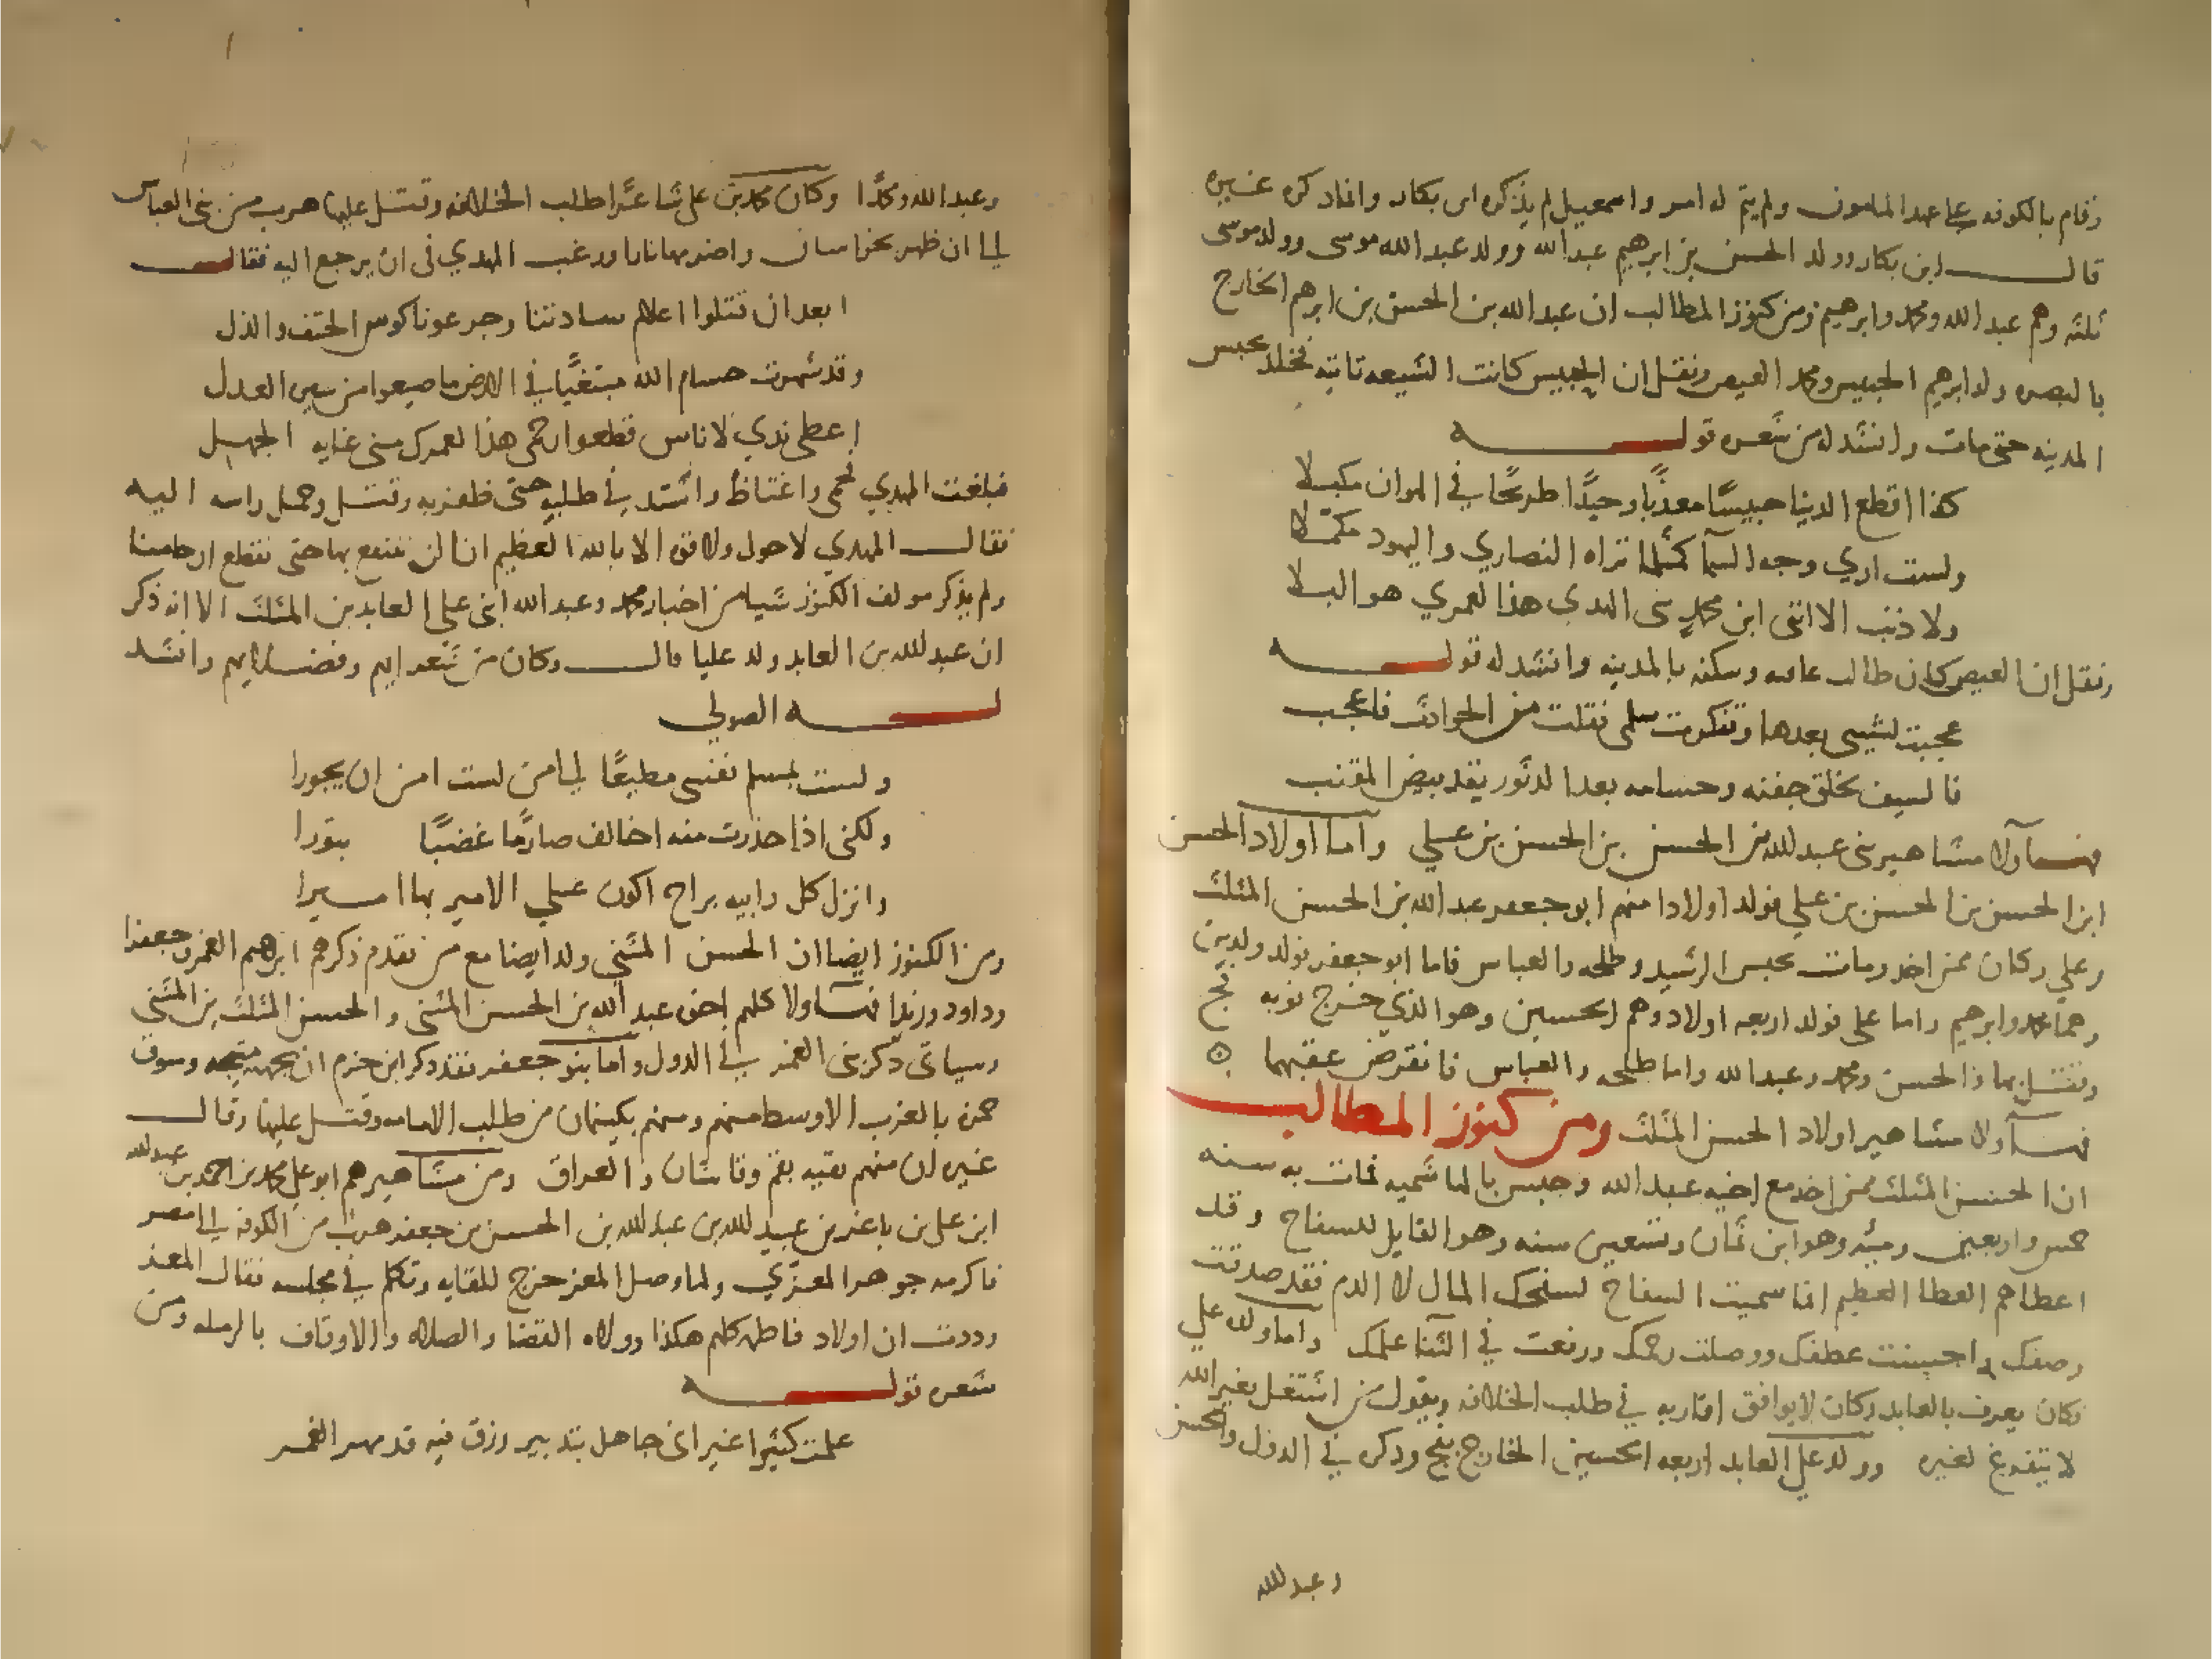 وقام بالكوفه على عهد المامون ولم يتم له امر واسمعيل لم يذكره ابن بكار وانما ذكره غيره
قال ابن بكار وولد الحسن بن ابرهيم عبد الله وولد عبد الله موسى وولد موسى
ثلثه وهم عبد الله ومحمد وابرهيم ومن كنوز المطالب ان عبد الله بن الحسن بن ابرهم الخارج
بالبصره ولد ابرهيم الحبيس ومحمد العيص ونقل ان الحبيس كانت الشيعه تاتيه فخلد بحبس
المدينه حتى مات وانشد له من شعره قوله
كذا اقطع الدنيا حبيسًا معذبًا وحيدًا طريحًا في الهوان مكبلا
ولست اري وجه السما كمثلما تراه النصاري واليهود مكملا
ولا ذنب الا انني ابن محمد بني الهدي هذا لعمري هو البلا
ونقل ان العيص كان طالب وسكنه بالمدينه وانشد له قوله
عجبت لشيبي بعدها وتنكرت سلمى فقلت من الحوادث فاعجب
فالسيف يخلق جفنه وحسامه بعد الدثور يقد بيض المقنب
فهـاولا مشاهير بني عبد لله بن الحسن بن الحسن بن علي واما اولاد الحسن
ابن الحسن بن الحسن بن علي فولد اولادا منهم ابو جعفر عبد الله بن الحسن المثلث
وعلي وكان ممن اخذ ومات بحبس الرشيد وطلحه والعباس فاما ابو جعفر فولد ولدين
وهما محمد وابرهيم واما علي فولد اربعه اولاد وهم الحسين وهو الذي خرج نوبه فج
وقتل بها ذا الحسن ومحمد وعبد الله واما طلحه والعباس فانقرض عقبهما
فهـاولا مشاهير اولاد الحسن المثلث ومن كنوز المطالب
ان الحسن المثلث ممن اخذ مع اخيه عبد الله وحبس بالهاشميه فمات به سنه
خمس واربعين وميه وهو ابن ثمان وتسعين سنه وهو القايل للسفاح وقد
اعطاهم العطا العظيم انما سميت السفاح لسفحك المال لا الدم فقد صدقت
وصفك واحسنت عطفك ووصلت رحمك ورفعت في الثنا علمك واما ولده علي
فكان يعرف بالعابد وكان لا يوافق اقاربه في طلب الخلافه ويقول من اشتغل بغير الله
لا يتفرغ لغيره وولد علي العابد اربعه الحسين الخارج بفج وذكره في الدول والحسن
وعبد لله
وعبد الله ومحمدًا وكان محمد بن علي شاعرًا طلب الخلافه وقتل عليها هرب من بني العباس
الى ان ظهر بخراسان واضرمها نارا ورغب المهدي في ان يرجع اليه فقال
ابعد ان قتلوا اعلام سادتنا وجرعونا كوس الحتف والذل
وقد شهرت حسام الله مبتغيًا في الارض ما ضيعوا من سير العدل
اعطي يدي لاناس قطعوا رحمي هذا لعمرك مني غايه الجهل
فبلغت المهدي فحمي واغتاظ واشتد في طلبه حتى ظفر به وقتل وحمل راسه اليه
فقال المهدي لا حول ولا قوه الا بالله العظيم انا لن ننتفع بها حتى نقطع ارحامنا
ولم يذكر مولف الكنوز شيا من اخبار محمد وعبد الله ابني علي العابد بن المثلث الا انه ذكر
ان عبد لله بن العابد ولد عليا قال وكان من شعرايهم وفضلايهم وانشد
له الصولي
ولست بمسلم نفسي مطيعًا الى من لست امن ان يجورا
ولكني اذا حذرت منه اخالف صارمًا غضبًا بتورا
وانزل كل رابيه براح اكون علي الامير بها اميرا
ومن الكنوز ايضا ان الحسن المثني ولد ايضا مع من تقدم ذكرهم ابرهيم الغمر وجعفرا
وداود وزيدا فهـاولا كلهم اخوه عبد الله بن الحسن المثني والحسن المثلث بن المثني
وسياتي ذكر بني الغمر في الدول واما بنو جعفر فقد ذكر ابن حزم ان بجهه متيجه وسوق
حمزه بالغرب الاوسط منهم ومنهم من طلب الامامه وقتل عليها وقال
غيره ان منهم بقيه بقم وقاشان والعراق ومن مشاهيرهم ابو علي محمد بن احمد بن عبد لله
ابن علي بن باغر بن عبيد لله بن عبد لله بن الحسن بن جعفر هرب من الكوفه الى مصر
فاكرمه جوهر المعزي ولما وصل المعز خرج للقايه وتكلم في مجلسه فقال المعز
وددت ان اولاد فاطمه كلهم هكذا وولاه القضا والصلاه والاوقاف بالرمله ومن
شعره قوله
علمت كثيرا غير اني جاهل بتدبير رزق فيه قد مهر الغمر